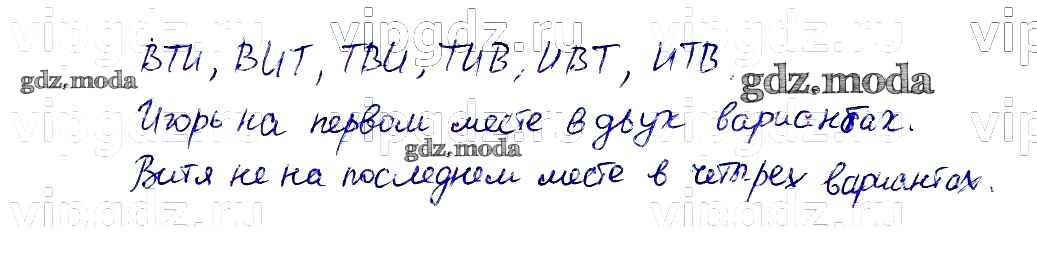 vipgdz.ru vipgdz.ru vipgdz.ru vip
ВТИ, ВИТ, ТВИ, ТИВ, ИВТ, ИТВ
gdz.moda gdz.moda
Игорь на первом месте в двух вариантах.
gdz.moda
Витя не на последнем месте в четырех вариантах.
vipgdz.ru vipgdz.ru vip